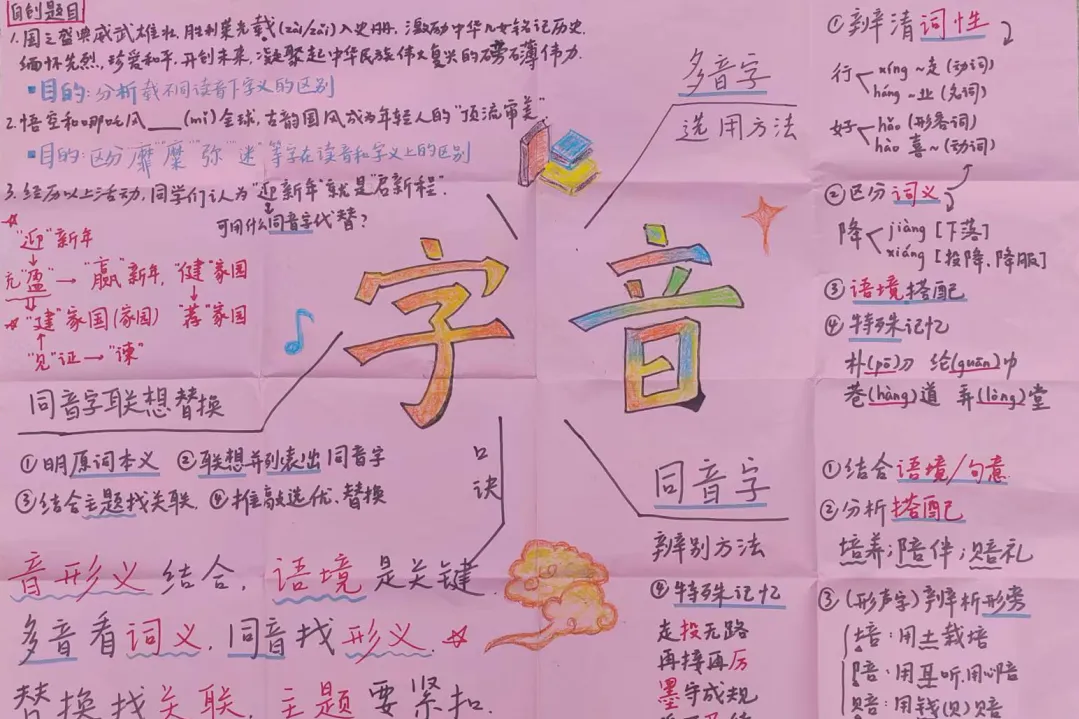 自创题目
1.国之盛典威武雄壮,胜利荣光载(zǎi/zài)入史册,激励中华儿女铭记历史,
缅怀先烈,珍爱和平,开创未来,凝聚起中华民族伟大复兴的磅礴伟力.
目的:分析载不同读音下字义的区别
2.悟空和哪吒风___(mǐ)全球,古韵国风成为年轻人的"顶流审美"
目的:区分"靡""糜""弥""迷"等字在读音和字义上的区别
3.经历以上活动,同学们认为"迎新年"就是"启新程".
可用什么同音字代替?
"迎"新年
"盈"→"赢"新年,"健"家国
"建"家国(家园) "荐"家国
"见"证→"谏"
同音字联想替换
①明原词本义 ②联想并列表出同音字
③结合主题找关联. ④推敲选优、替换
口诀
音形义结合,语境是关键.
多音看词义,同音找形义.
替换找关联,主题要紧扣.
字音
多音字
选用方法
①辨清词性
行 xíng ~走(动词)
háng ~业(名词)
好 hǎo (形容词)
hào 喜~(动词)
②区分词义
降 jiàng [下落]
xiáng [投降、降服]
③语境搭配
④特殊记忆
朴(pō)刀 纶(guān)巾
巷(hàng)道 弄(lòng)堂
同音字
辨别方法
①结合语境/句意
②分析搭配
培养;陪伴;赔礼
③(形声字)辨析形旁
培:用土栽培
陪:用耳听,用心陪
赔:用钱(贝)赔
④特殊记忆
走投无路
再接再厉
墨守成规